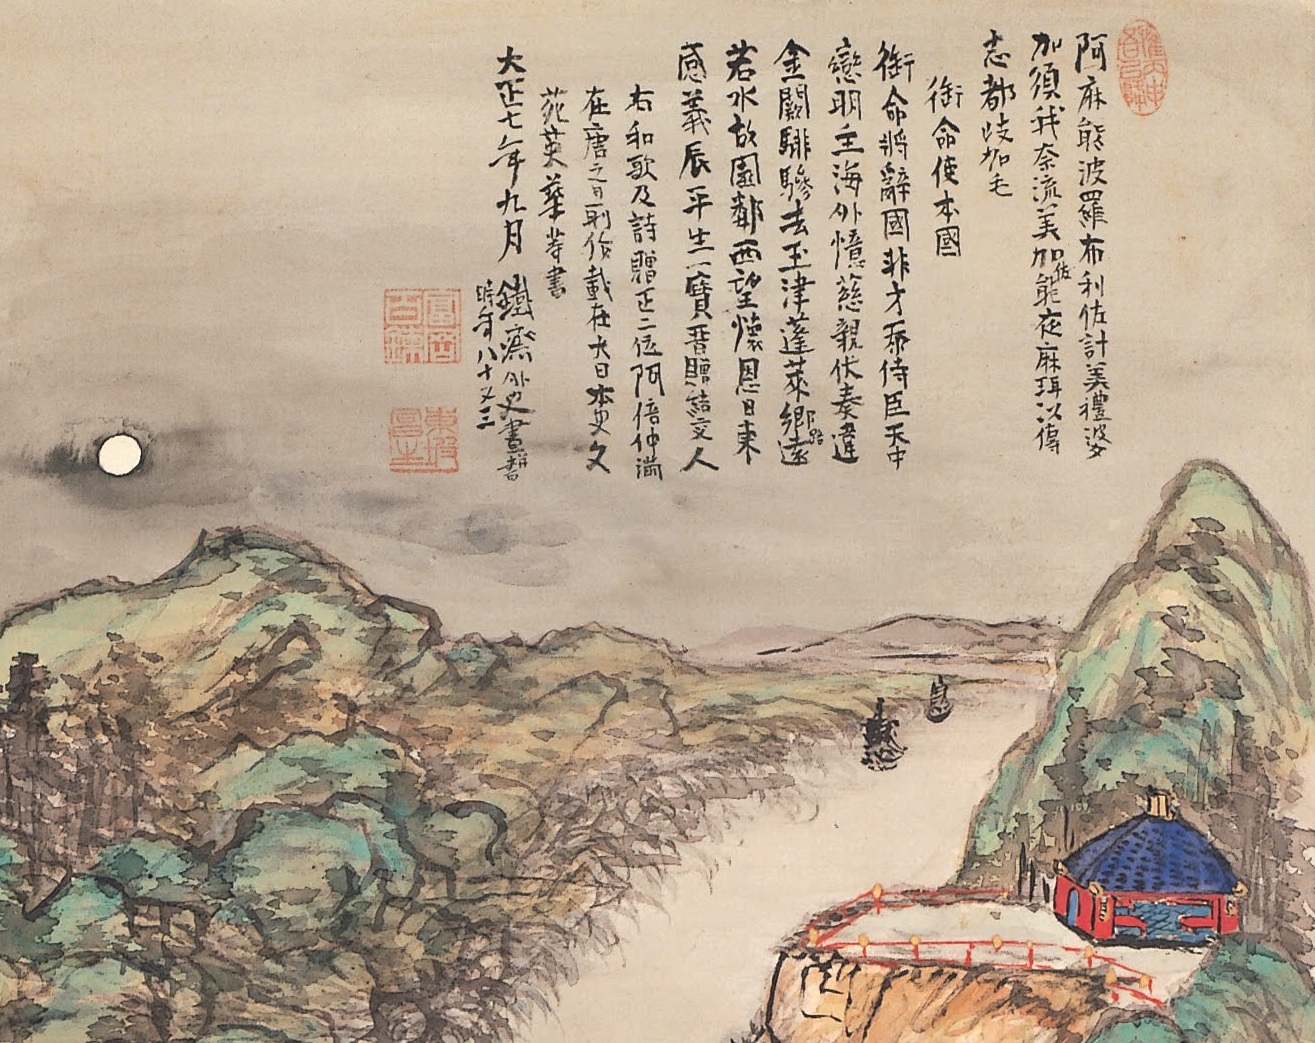 阿麻能波羅布利佐計美禮婆
加須我奈流美加佐能夜麻珥以傳
志都岐加毛
銜命使本國
銜命將辭國非才忝侍臣天中
戀明主海外憶慈親伏奏違
金闕騑驂去玉津蓬萊鄉路遠
若水故園鄰西望懷恩日東
感義辰平生一寶贈結交人
右和歌及詩贈正二位阿倍仲滿
在唐之日所作載在大日本史文
苑英華等書
大正七年九月 鐵齋外史畫并書
時年八十又三
富岡百鍊